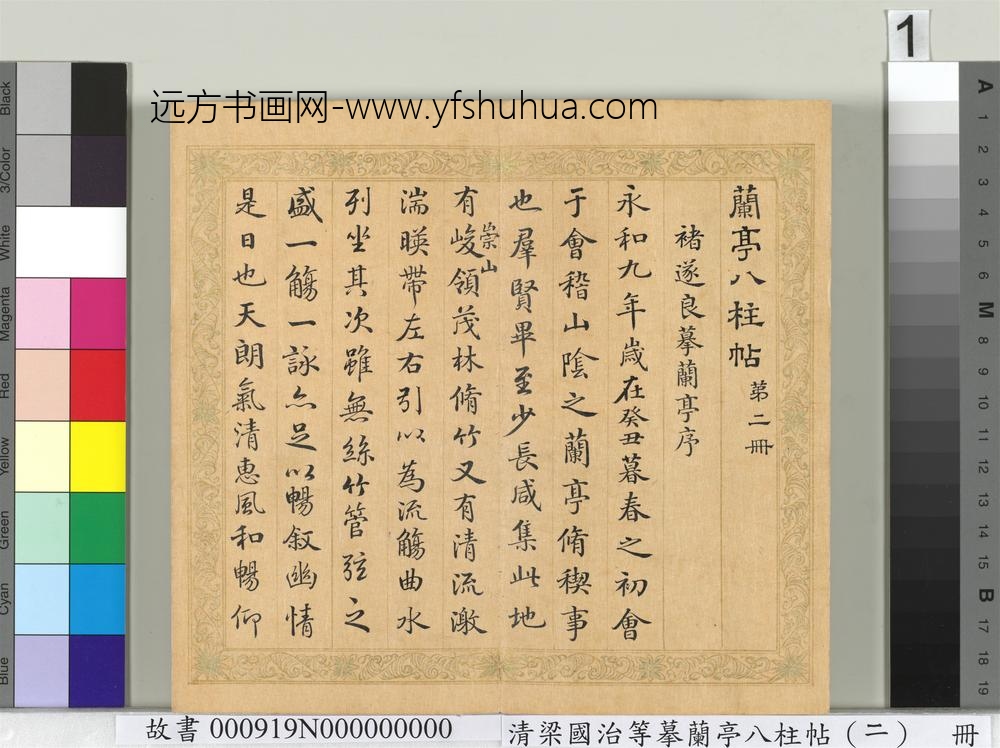 1
远方书画网-www.yfshuhua.com
蘭亭八柱帖 第二冊
褚遂良摹蘭亭序
永和九年歲在癸丑暮春之初會
于會稽山陰之蘭亭脩稧事
也羣賢畢至少長咸集此地
有崇山峻領茂林脩竹又有清流激
湍暎帶左右引以為流觴曲水
列坐其次雖無絲竹管弦之
盛一觴一詠亦足以暢叙幽情
是日也天朗氣清惠風和暢仰
Black
3/Color
White
Magenta
Red
Yellow
Green
Cyan
Blue
A
1
2
3
4
5
6
M
8
9
10
11
12
13
14
15
B
17
18
19
故書 000919N000000000
清梁國治等摹蘭亭八柱帖（二） 冊